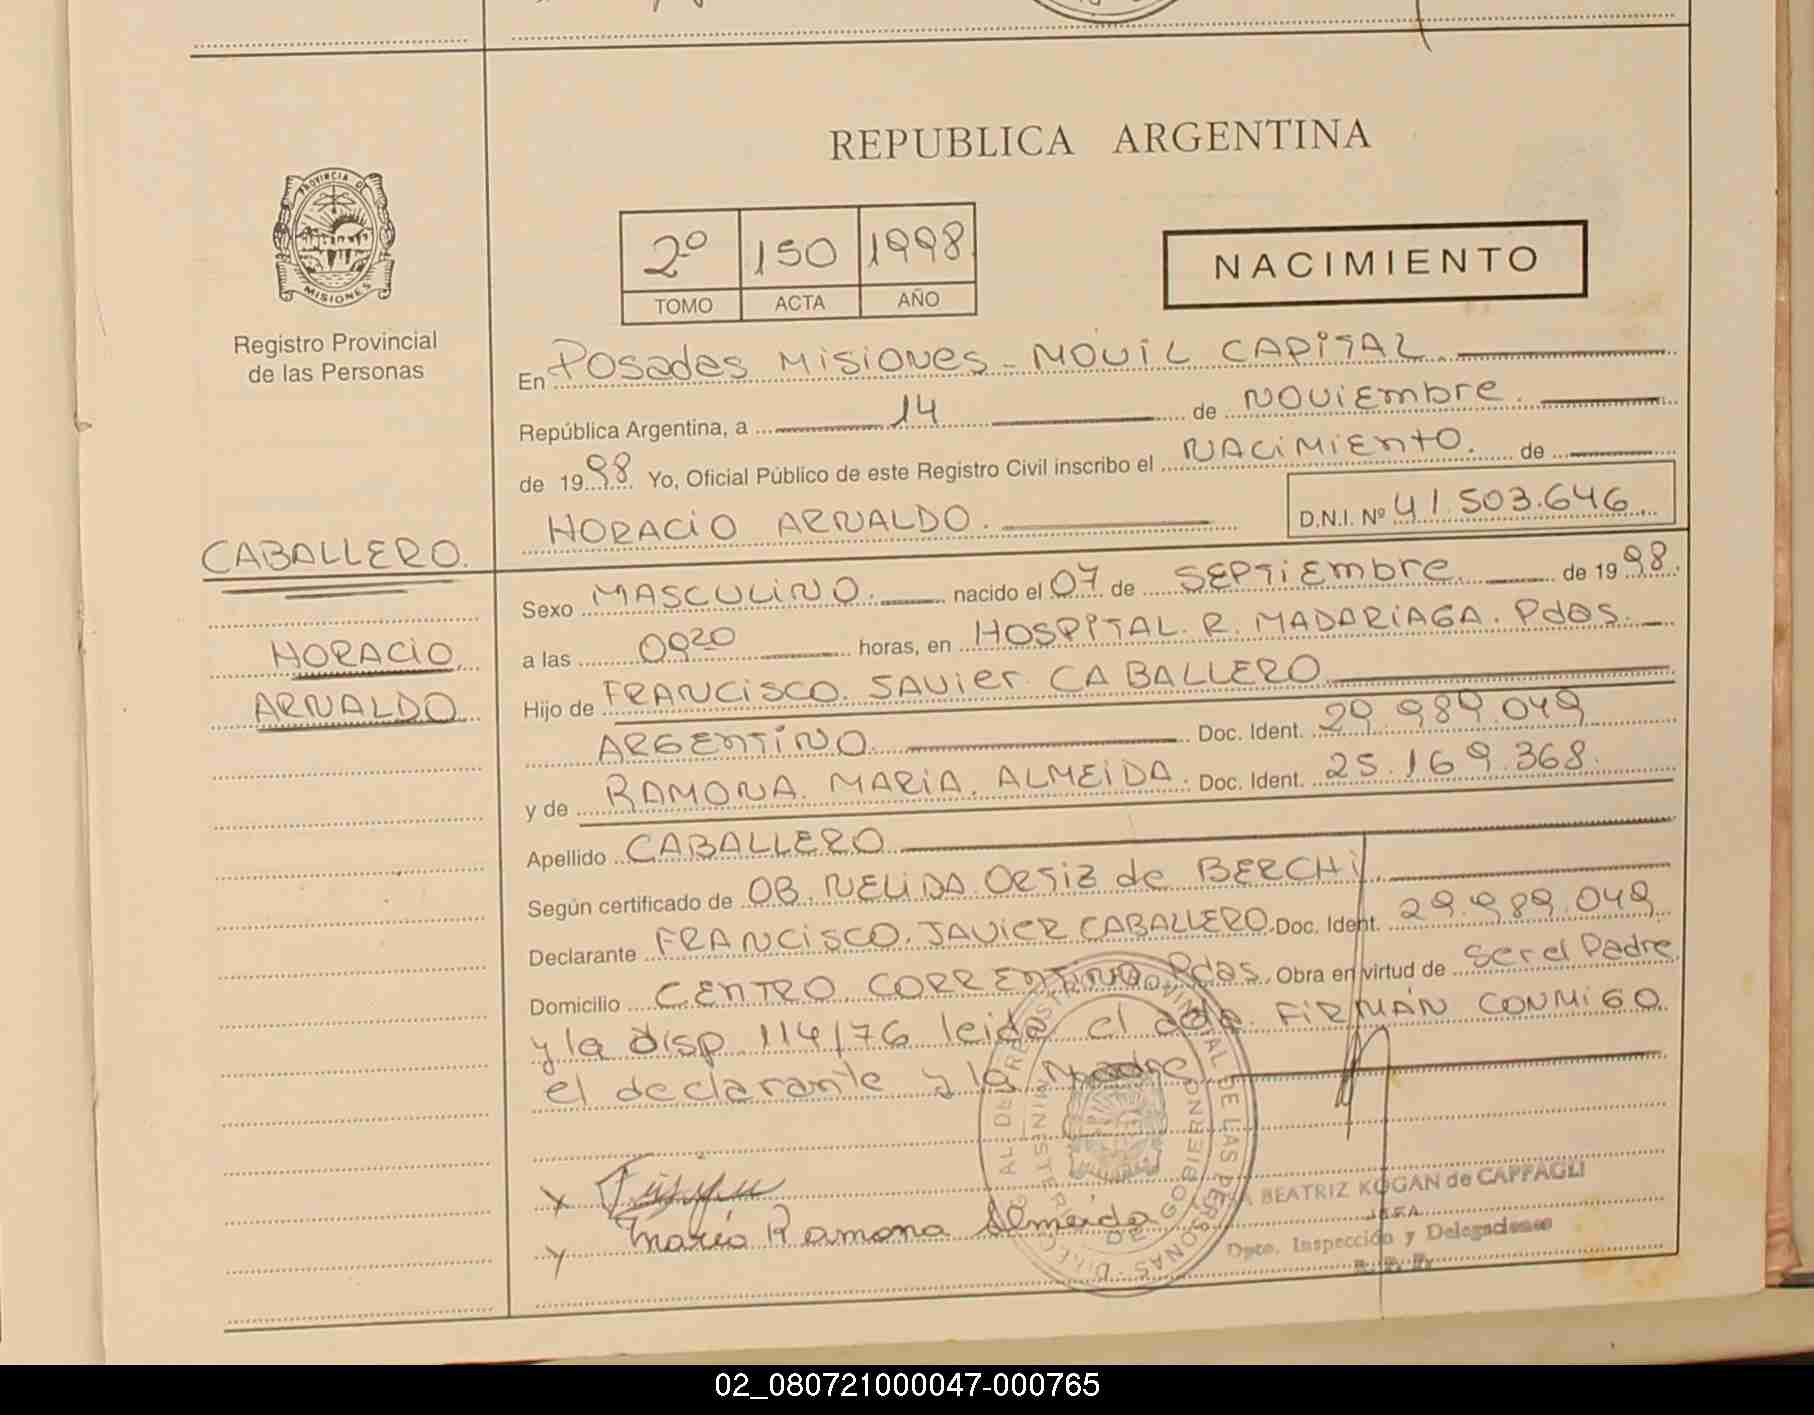 REPUBLICA ARGENTINA
PROVINCIA DE
MISIONES
Registro Provincial
de las Personas
2º 150 1998
TOMO ACTA AÑO
NACIMIENTO
En Posadas Misiones - Movil Capital.
República Argentina, a 14 de Noviembre.
de 1998 Yo, Oficial Público de este Registro Civil inscribo el Nacimiento. de
HORACIO ARNALDO. D.N.I. Nº 41.503.646
CABALLERO.
HORACIO
ARNALDO
Sexo MASCULINO. nacido el 07 de SEPTIEMBRE de 1998.
a las 0920 horas, en HOSPITAL. R. MADARIAGA. Pdas.
Hijo de FRANCISCO. SAVIER CABALLERO
ARGENTINO Doc. Ident. 29.989.049
y de RAMONA. MARIA. ALMEIDA. Doc. Ident. 25.169.368.
Apellido CABALLERO
Según certificado de OB. NELIDA Ortiz de BERCHI
Declarante FRANCISCO. JAVIER CABALLERO. Doc. Ident. 29.989.049
Domicilio CENTRO CORRENTINO Pdas. Obra en virtud de ser el Padre
y la disp 114/76 leida el acta. FIRMAN CONMIGO
el declarante y la Madre
X
Y Maria Ramona Almeida
BEATRIZ KOGAN de CAPPAGLI
JEFA
Dpto. Inspección y Delegaciones
02_080721000047-000765